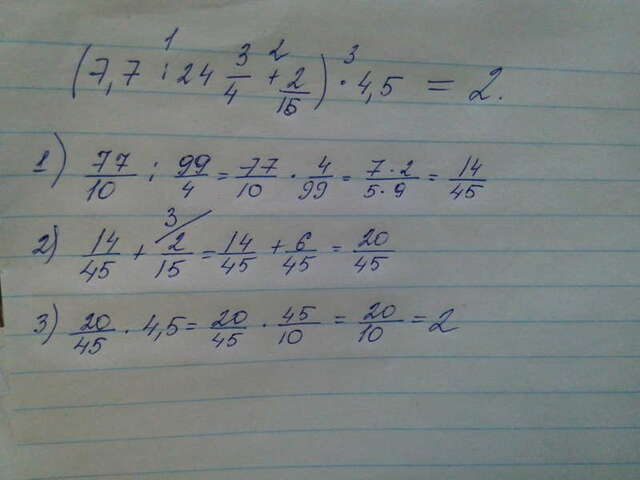 (7,7 : 24 3/4 + 2/15) · 4,5 = 2.
1) 77/10 : 99/4 = 77/10 · 4/99 = 7·2/5·9 = 14/45
2) 14/45 + 2/15 = 14/45 + 6/45 = 20/45
3) 20/45 · 4,5 = 20/45 · 45/10 = 20/10 = 2